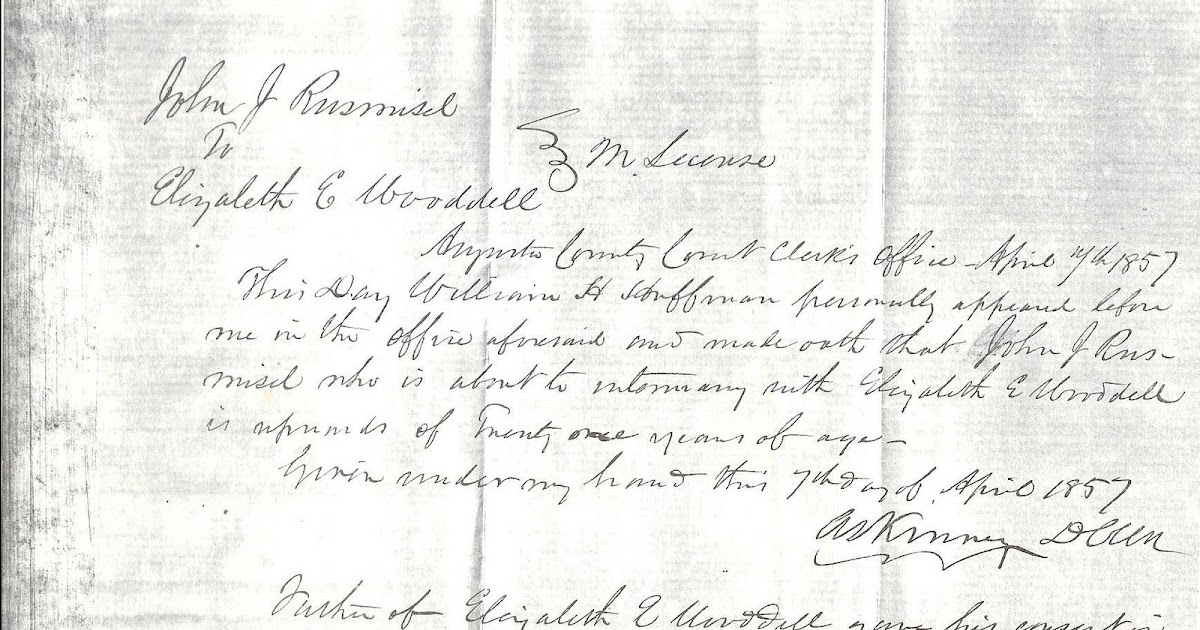 John J Rusmisel
To
M. License
Elizabeth E Wooddell
Augusta County Court Clerks Office - April 7th 1857
This Day William H Huffman personally appeared before
me in the office aforesaid and made oath that John J Rus-
misel who is about to intermarry with Elizabeth E Wooddell
is upwards of Twenty one years of age -
Given under my hand this 7th day of April 1857
Kinney
of Elizabeth E Wooddell gave his consent in